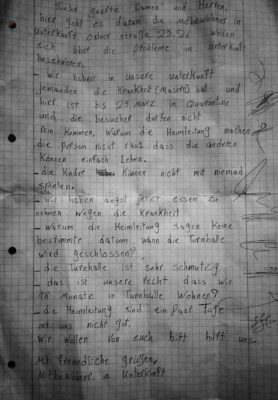 Sehr geerte Damen und Herren,
hier geht es darum die mitbewohner in
Unterkunft osloer straße 23.26 wollen
sich über die Probleme in Unterkunft
beschweren.
- Wir haben in unsere unterkunft
jemanden die Krankheit (Masern) hat und
hier ist bis 29. März in Quarantine
und die besucher dürfen nicht
rein kommen, Warum die Heimleitung machen
die person nicht raus dass die anderen
Können einfach Leben.
- die Kinder können nicht mit niemad
spielen.
- wir haben angst jetzt essen zu
nehmen wegen die Krankheit
- warum die Heimleitung sagen Keine
bestimmte datum wann die Turnhalle
wird geschlossen?
- die Turnhalle ist sehr schmutzig
- das ist unsere recht dass wir
18 Monate in Turnhalle Wohnen?
- die Heimleitung sind ein paar Tage
mit uns nicht gut.
Wir wollen Von euch bitt hilft uns.
Mit freundliche grüßen,
Mitbewohner in Unterkunft